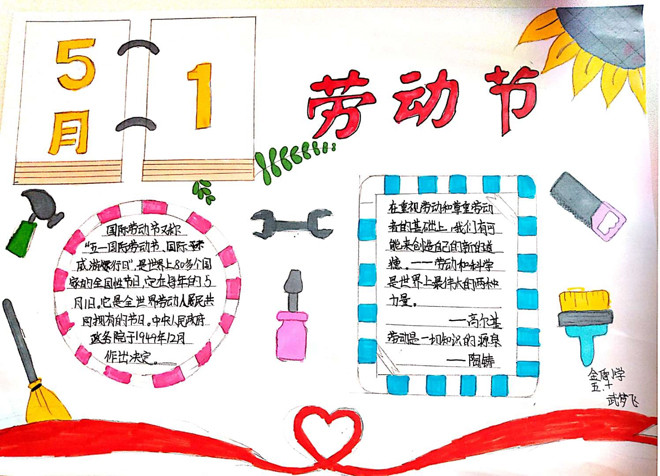 5月
1
劳动节
国际劳动节又称
"五一国际劳动节、国际示
威游行日",是世界上80多个国
家的全国性节日,定在每年的5
月1日。它是全世界劳动人民共
同拥有的节日。中央人民政府
政务院于1949年12月
作出决定。
在重视劳动和尊重劳动
者的基础上,我们有可
能来创造自己的新的道
德。——劳动和科学
是世界上最伟大的两种
力量。
——高尔基
劳动是一切知识的源泉
——陶铸
小学
五.十
武梦飞